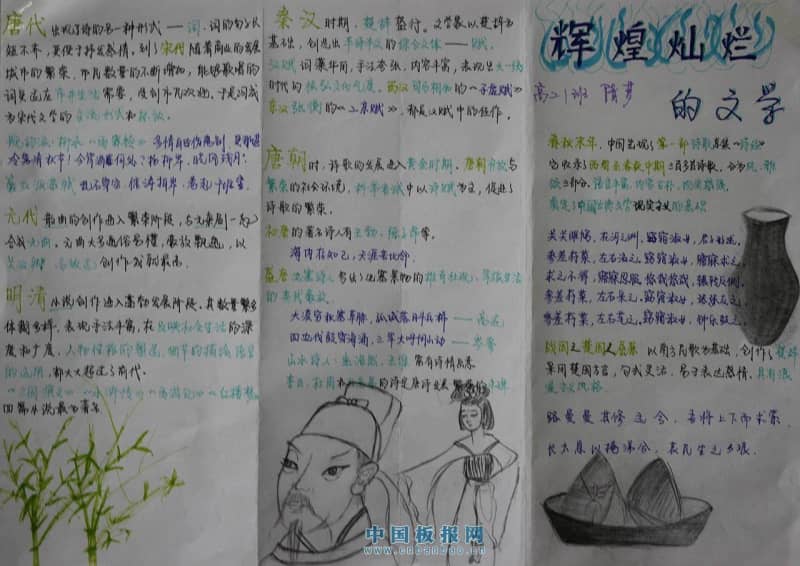 辉煌灿烂
的文学
高二1班 隋梦
春秋末年,中国出现了第一部诗歌总集《诗经》
它收录了西周至春秋中期三百多首诗歌,分为风、雅、
颂三部分,
奠定了中国古典文学现实主义的基础
关关雎鸠,在河之洲,窈窕淑女,君子好逑,
参差荇菜,左右流之,窈窕淑女,寤寐求之,
求之不得,寤寐思服,悠哉悠哉,辗转反侧,
参差荇菜,左右采之,窈窕淑女,琴瑟友之,
参差荇菜,左右芼之,窈窕淑女,钟鼓乐之,
战国人楚国人屈原 以南方民歌为基础,创作了楚辞
采用楚国方言,句式灵活,易于表达感情,具有浪
漫主义风格
路曼曼其修远兮,吾将上下而求索
长太息以掩涕兮,哀民生之多艰.
秦汉时期,楚辞盛行,文学家以楚辞为
基础,创造出半诗半文的综合文体——赋,
汉赋词藻华丽,手法夸张,内容丰富,表现出大一统
时代的恢弘文化气度,西汉司马相如的《子虚赋》
东汉张衡的《二京赋》,都是汉赋中的佳作,
唐朝时,诗歌的发展进入黄金时期,唐朝开放与
繁荣的社会环境,科举考试中以诗赋为主,促进了
诗歌的繁荣,
初唐的著名诗人有王勃、陈子昂等,
海内存知己,天涯若比邻
盛唐边塞诗人写出了边塞景物的雄奇壮观,军旅生活
的
大漠穷秋塞草腓,孤城落日斗兵稀——高适
四边伐鼓雪海涌,三军大呼阴山动——岑参
山水诗人:孟浩然、王维 富有诗情画意
唐代出现了诗的另一种形式——词,词的句子长
短不齐,更便于抒发感情,到了宋代随着商业的发展
城市的繁荣,市民数量的不断增加,能够歌唱的
词更适合市井生活需要,受到市民欢迎,于是词成
为宋代文学的主流形式和标志,
婉约派:柳永《雨霖铃》多情自古伤离别,更那堪
冷落清秋节!今宵酒醒何处?杨柳岸,晓风残月.
豪放派苏轼 乱石穿空,惊涛拍岸,卷起千堆雪
元代散曲的创作进入繁荣阶段,与元杂剧一起
合成元曲,元曲大多通俗易懂,
创作成就最高.
明清小说创作进入蓬勃发展阶段,其数量繁多
体裁多样,表现手法丰富,在反映社会生活的深
度和广度,人物性格的塑造,细节的描绘,语言
的运用,都大大超过了前代.
《三国演义》《水浒传》《西游记》《红楼梦》
四部小说最为著名
中国板报网
www.cnbanbao.cn